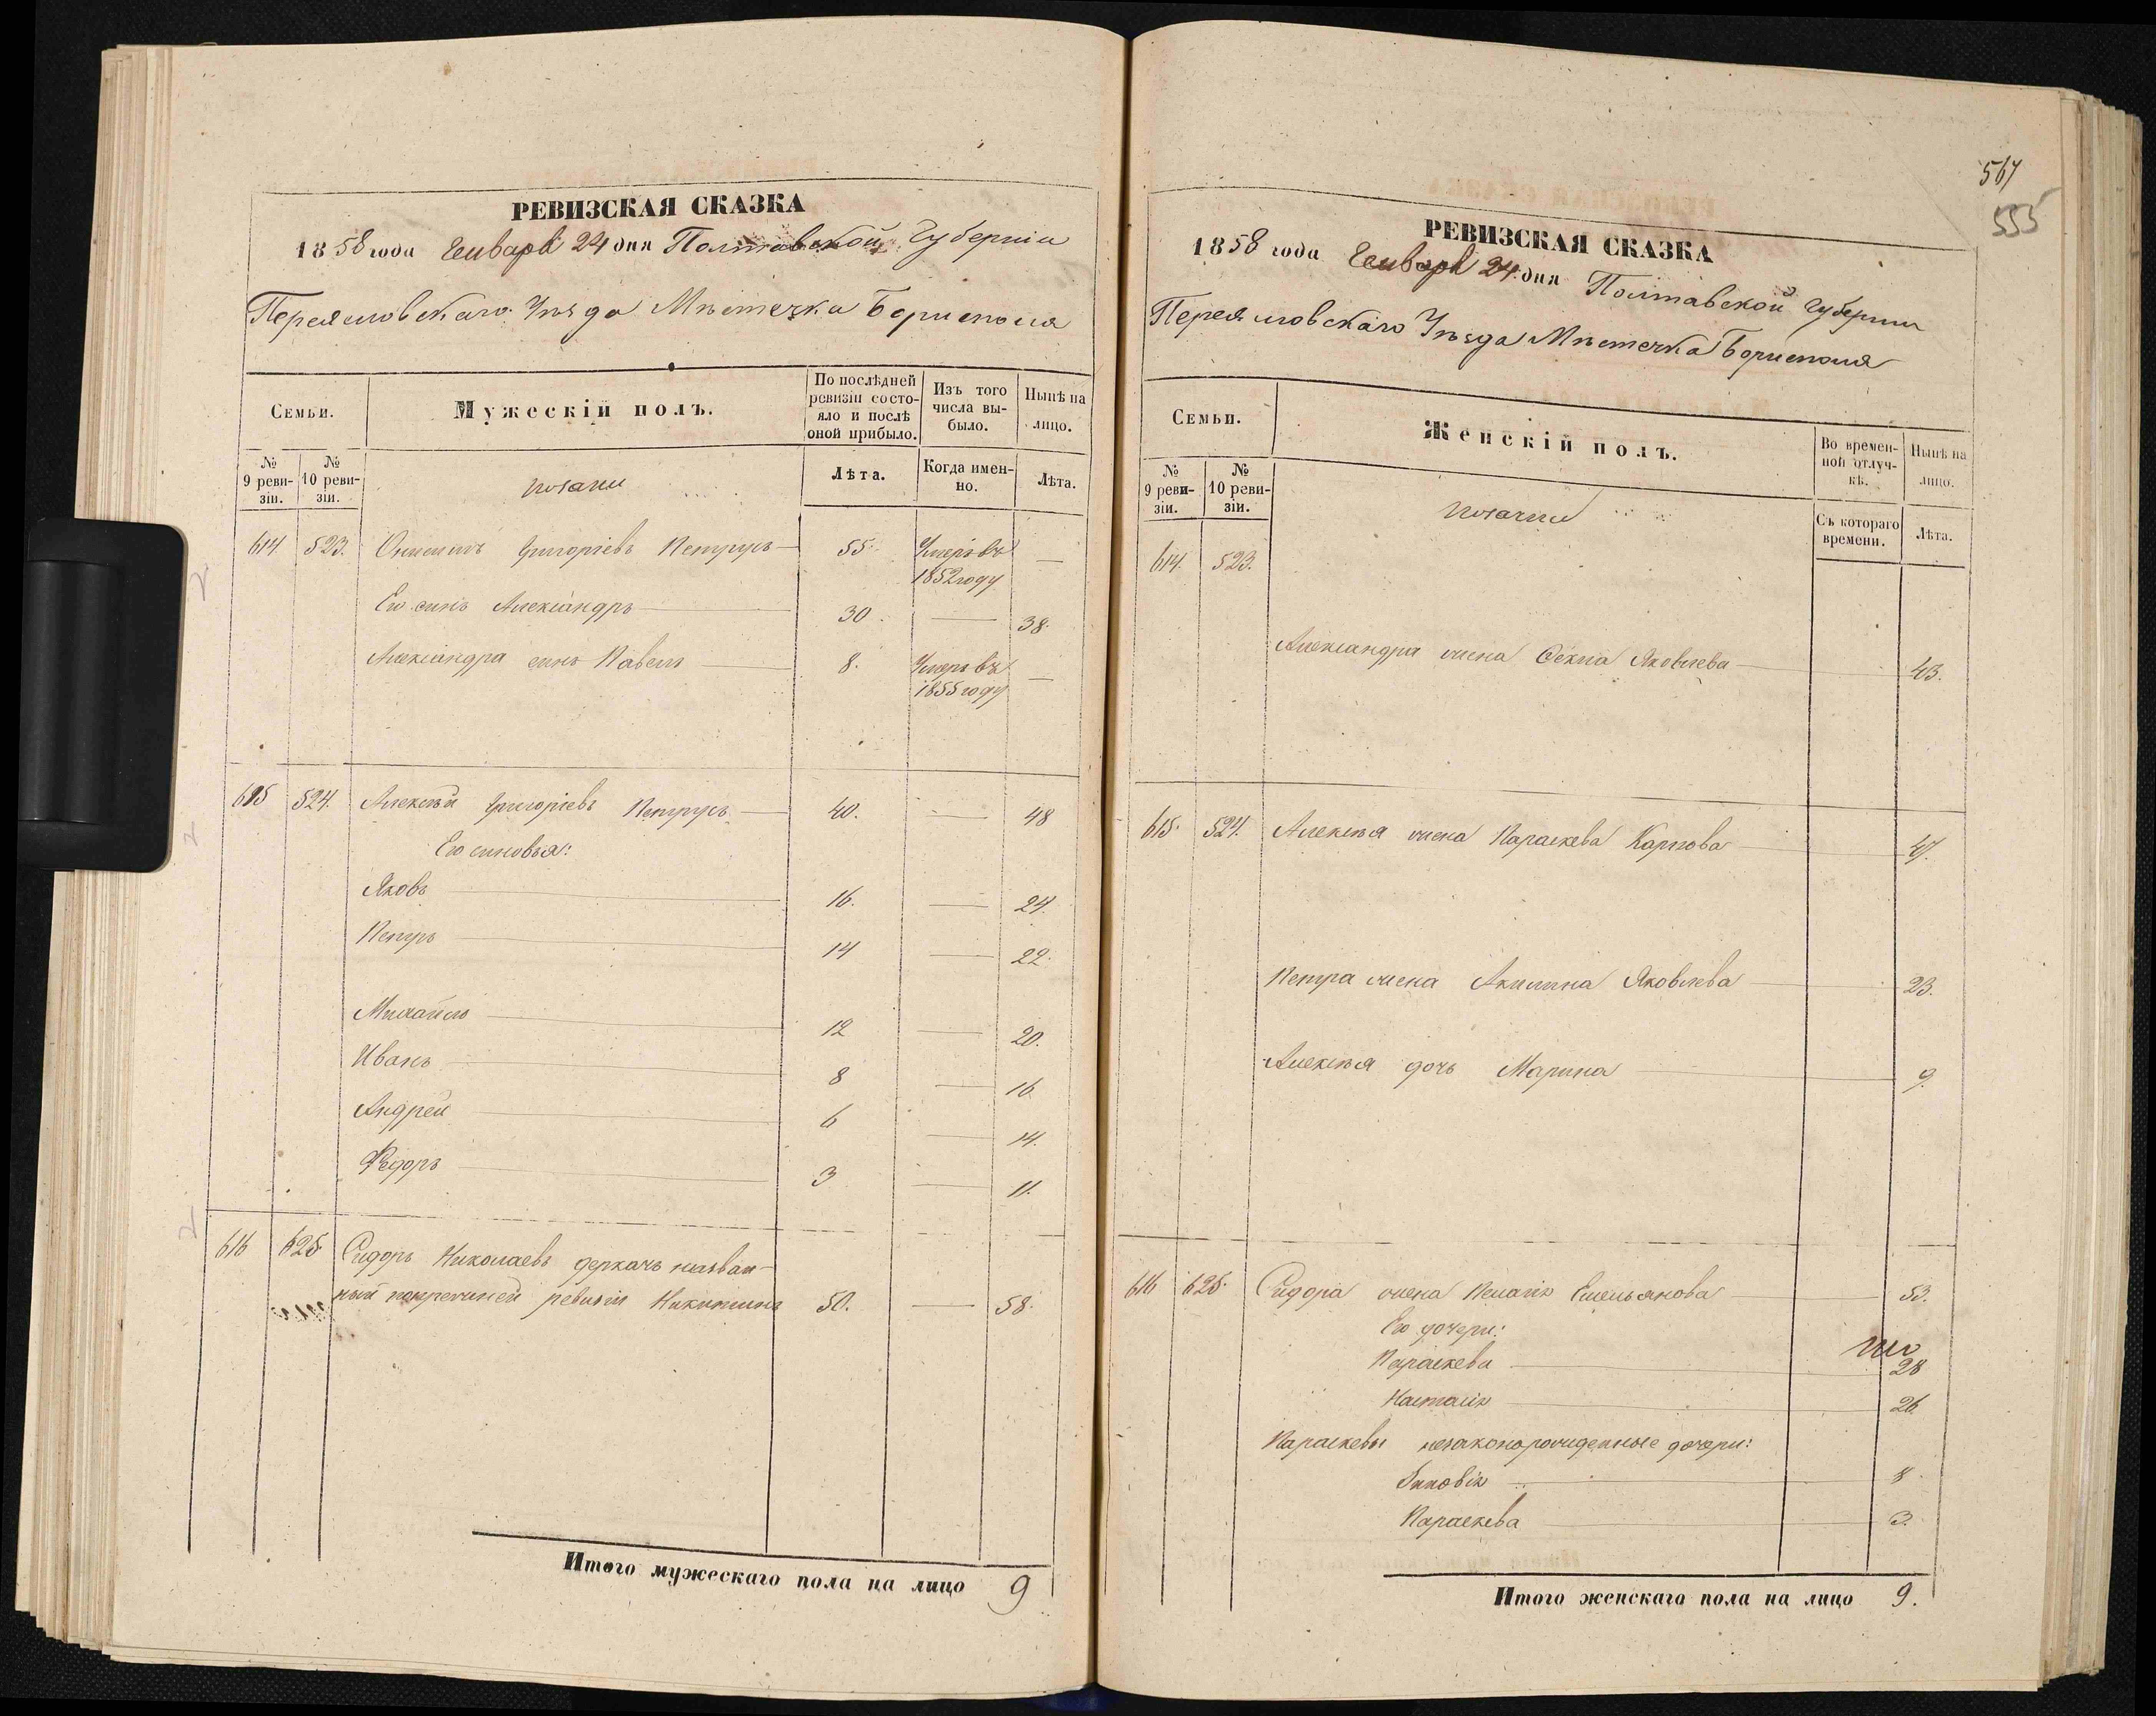 РЕВИЗСКАЯ СКАЗКА
1858 года Генваря 24 дня Полтавской Губерніи
Переяславскаго Уѣзда Мѣстечка Борисполя
Семьи.
Мужескій полъ.
По послѣдней ревизіи состояло и послѣ оной прибыло.
Изъ того числа выбыло.
Нынѣ на лицо.
№ 9 ревизіи.
№ 10 ревизіи.
Лѣта.
Когда именно.
Лѣта.
614 523. Григоріевъ Петрусь 55. Умеръ въ 1852 году —
Его сынъ Александръ 30. — 38.
Александра сынъ Павелъ 8. Умеръ въ 1855 году —
615 524. Алексѣй Григоріевъ Петрусь 40. — 48
Его сыновья:
Яковъ 16. — 24.
Петръ 14 — 22.
Михайло 12 — 20.
Иванъ 8 — 16
Андрей 6 — 14.
Федоръ 3 — 11.
616 625 Сидоръ Николаевъ деркачь назван-
ный ревизіи 50. — 58.
Итого мужескаго пола на лицо 9
567
555
РЕВИЗСКАЯ СКАЗКА
1858 года Генваря 24 дня Полтавской Губерніи
Переяславскаго Уѣзда Мѣстечка Борисполя
Семьи.
Женскій полъ.
Во временной отлучкѣ.
Нынѣ на лицо.
№ 9 ревизіи.
№ 10 ревизіи.
Съ котораго времени.
Лѣта.
614. 523.
Александра жена Яковлева 43.
615. 524. Алексѣя жена Параскева Карпова 47.
Петра жена Акилина Яковлева 23.
Алексѣя дочь Марина 9.
616 625. Сидора жена Емельянова 53.
Его дочери:
Параскева 28
Настасія 26
Параскевы незаконорожденные дочери:
Зиновія 8
Параскева 3.
Итого женскаго пола на лицо 9.